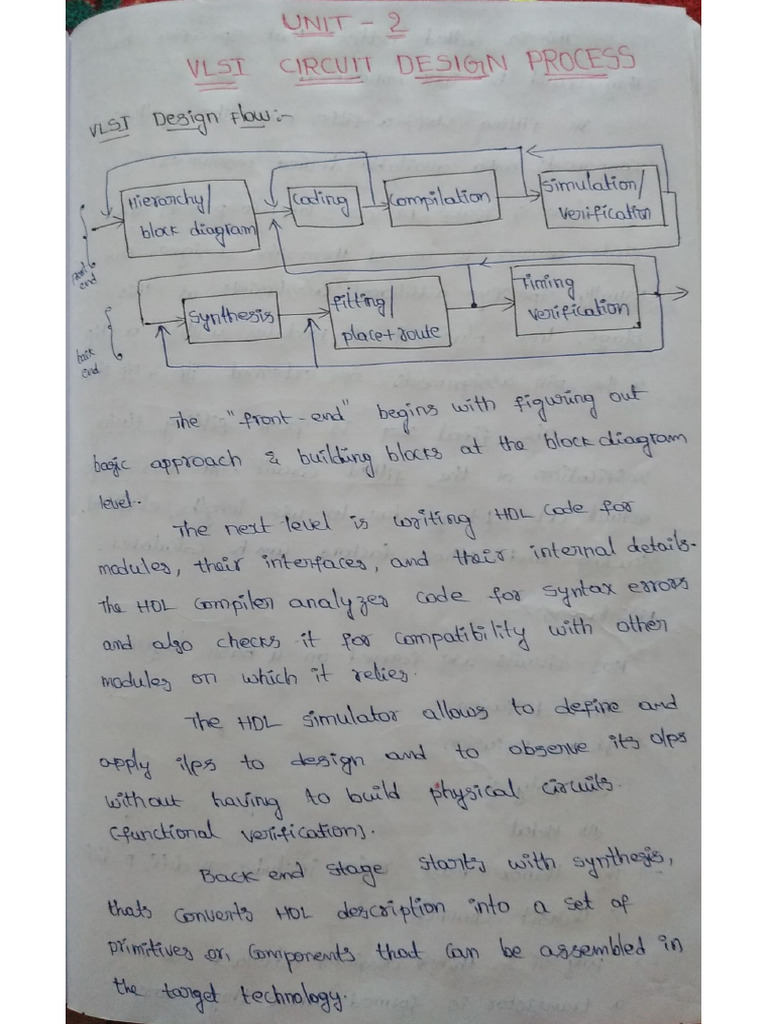 UNIT - 2
VLSI CIRCUIT DESIGN PROCESS
VLSI Design Flow:-
Hierarchy/
block diagram
Coding
Compilation
Simulation/
verification
front
end
Synthesis
fitting/
place+route
Timing
verification
back
end
The "front-end" begins with figuring out
basic approach & building blocks at the block diagram
level.
The next level is writing HDL code for
modules, their interfaces, and their internal details.
The HDL compiler analyzes code for syntax errors
and also checks it for compatibility with other
modules on which it relies.
The HDL simulator allows to define and
apply i/ps to design and to observe its o/ps
without having to build physical circuits.
(functional verification).
Back end stage starts with synthesis,
thats converts HDL description into a set of
primitives or, components that can be assembled in
the target technology.